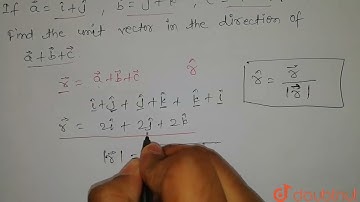 If a⃗ = î + ĵ, b⃗ = ĵ +
Find the unit vector in the direction of
a⃗ + b⃗ + c⃗
r⃗ = a⃗ + b⃗ + c⃗
r̂
î + ĵ + ĵ + k̂ + k̂ + î
r⃗ = 2î + 2ĵ + 2k̂
|r⃗| =
r̂ = r⃗ / |r⃗|
doubtnut